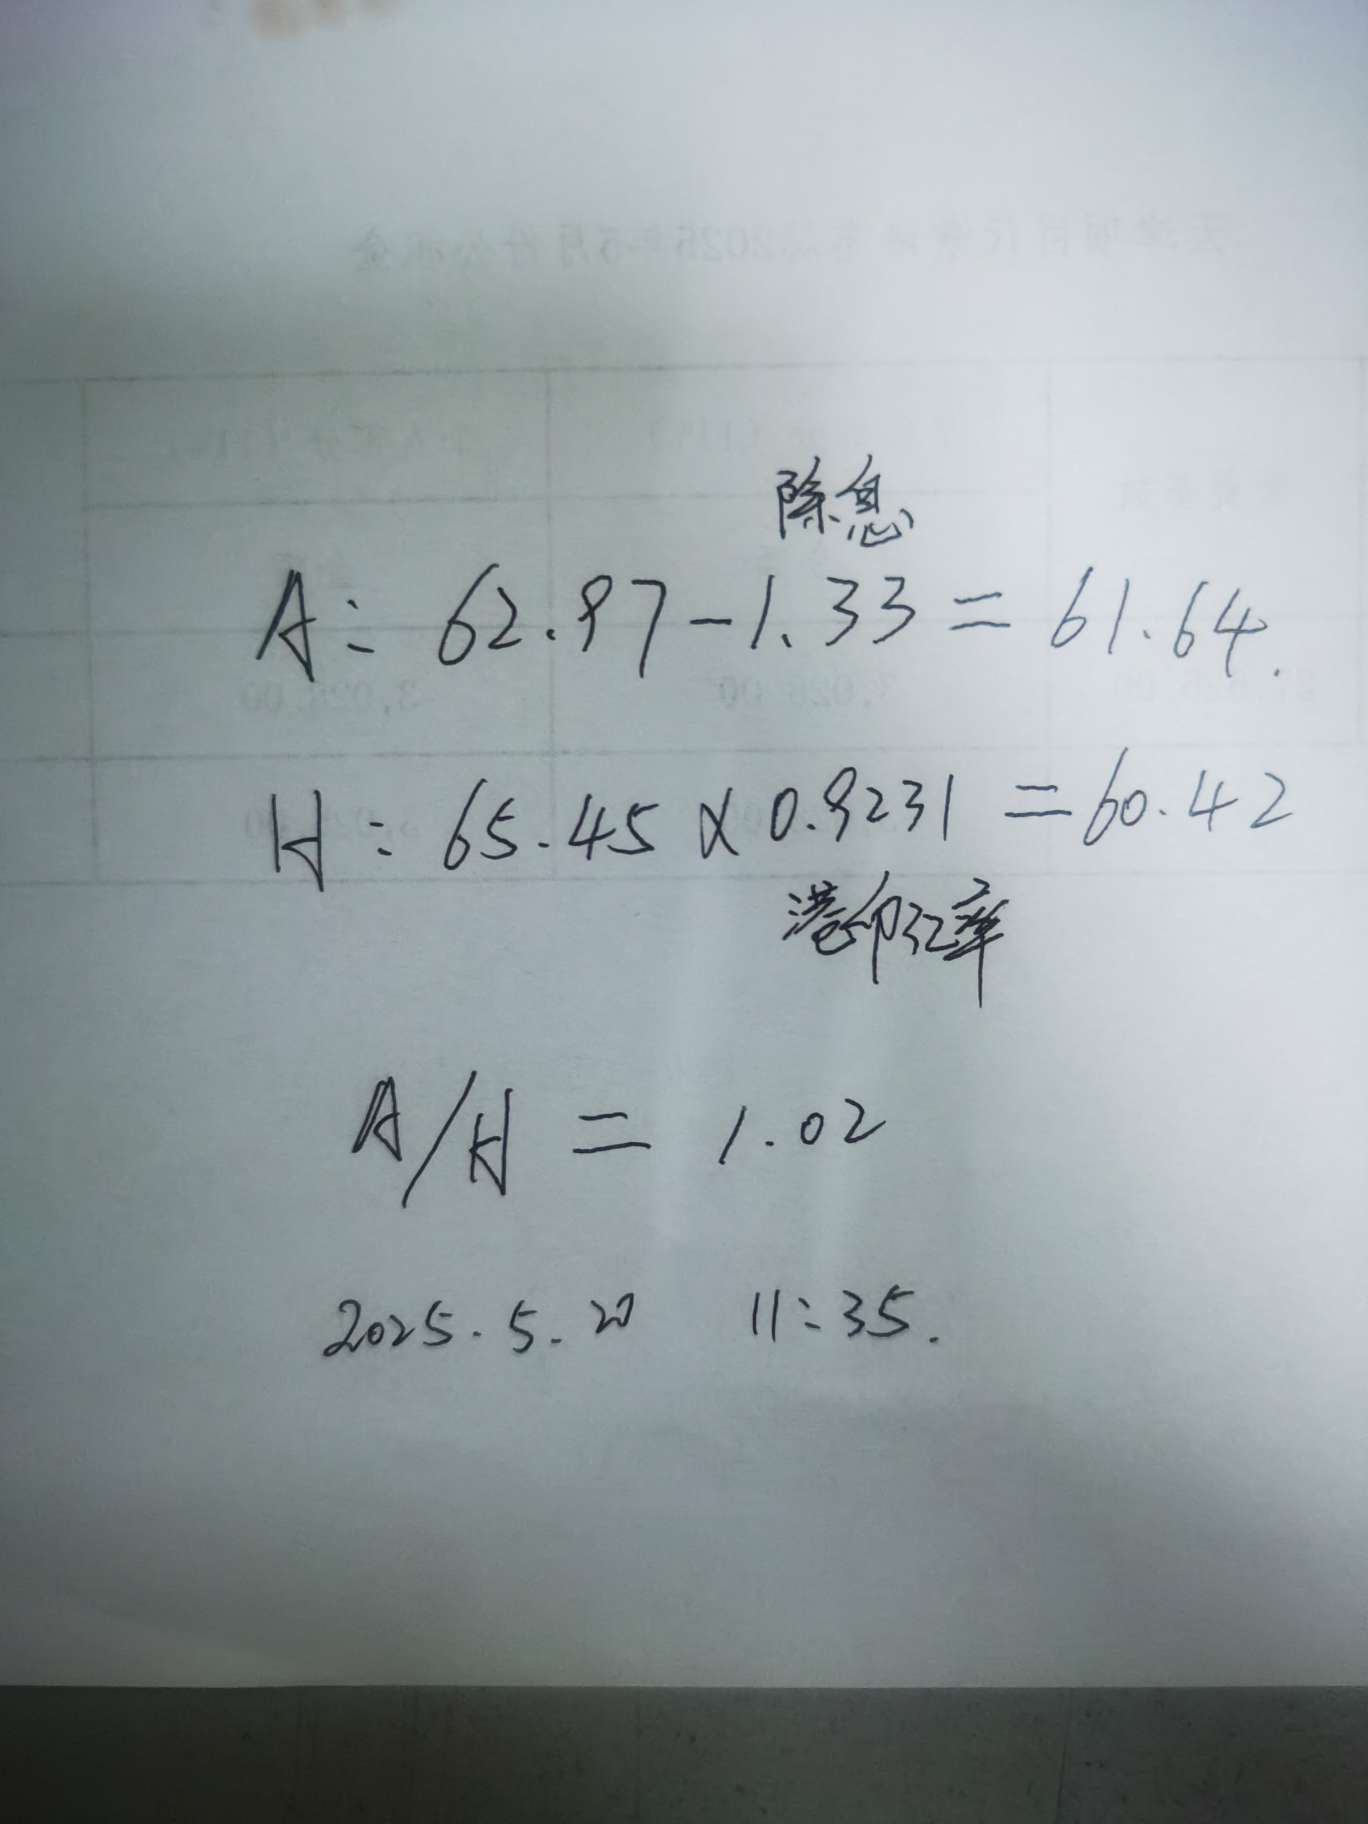 除息
A: 62.97-1.33=61.64.
H: 65.45×0.9231=60.42
港币汇率
A/H=1.02
2025.5.20 11:35.